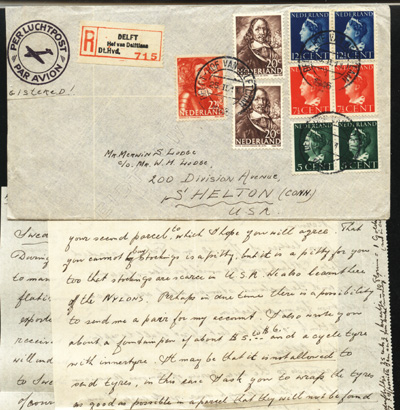 PER LUCHTPOST
PAR AVION
R
DELFT
Hof van Delftlaan
Dt.Hvd.
715
GISTERED!
NEDERLAND
22½
NEDERLAND
20 CT
NEDERLAND
20 CT
NEDERLAND
12½ CENT
12½ CENT
7½ CENT
7½ CENT
5 CENT
5 CENT
Mr. Merwin S. Lodge
c/o. Mr. W. H. Lodge,
200 Division Avenue,
SHELTON (CONN)
U.S.A
Swed
During
to man
receiv
will und
to Swe
your second parcel, to which I hope you will agree. That
you cannot buy stockings is a pitty, but it is a pitty for you
too that stockings are scarce in U.S.A. We also learnt here
of the NYLONS. Perhaps in due time there is a possibility
to send me a parr for my account. I also wrote you
about a fountain pen of about $5.- to $6.- and a cycle tyre
with innertyre. It may be that it is not allowed to
send tyres, in this case I ask you to wrap the tyres
as good as possible in a parcel that they will not be found